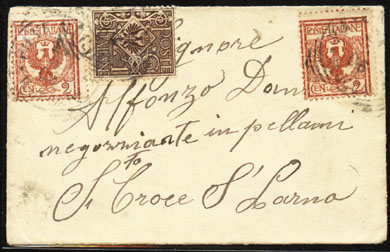 POSTE ITALIANE
CEN. 2
POSTE ITALIANE
POSTE ITALIANE
CEN. 2
Signore
Alfonzo Dani
negozniante in pellami
S.ta Croce S' L'arno